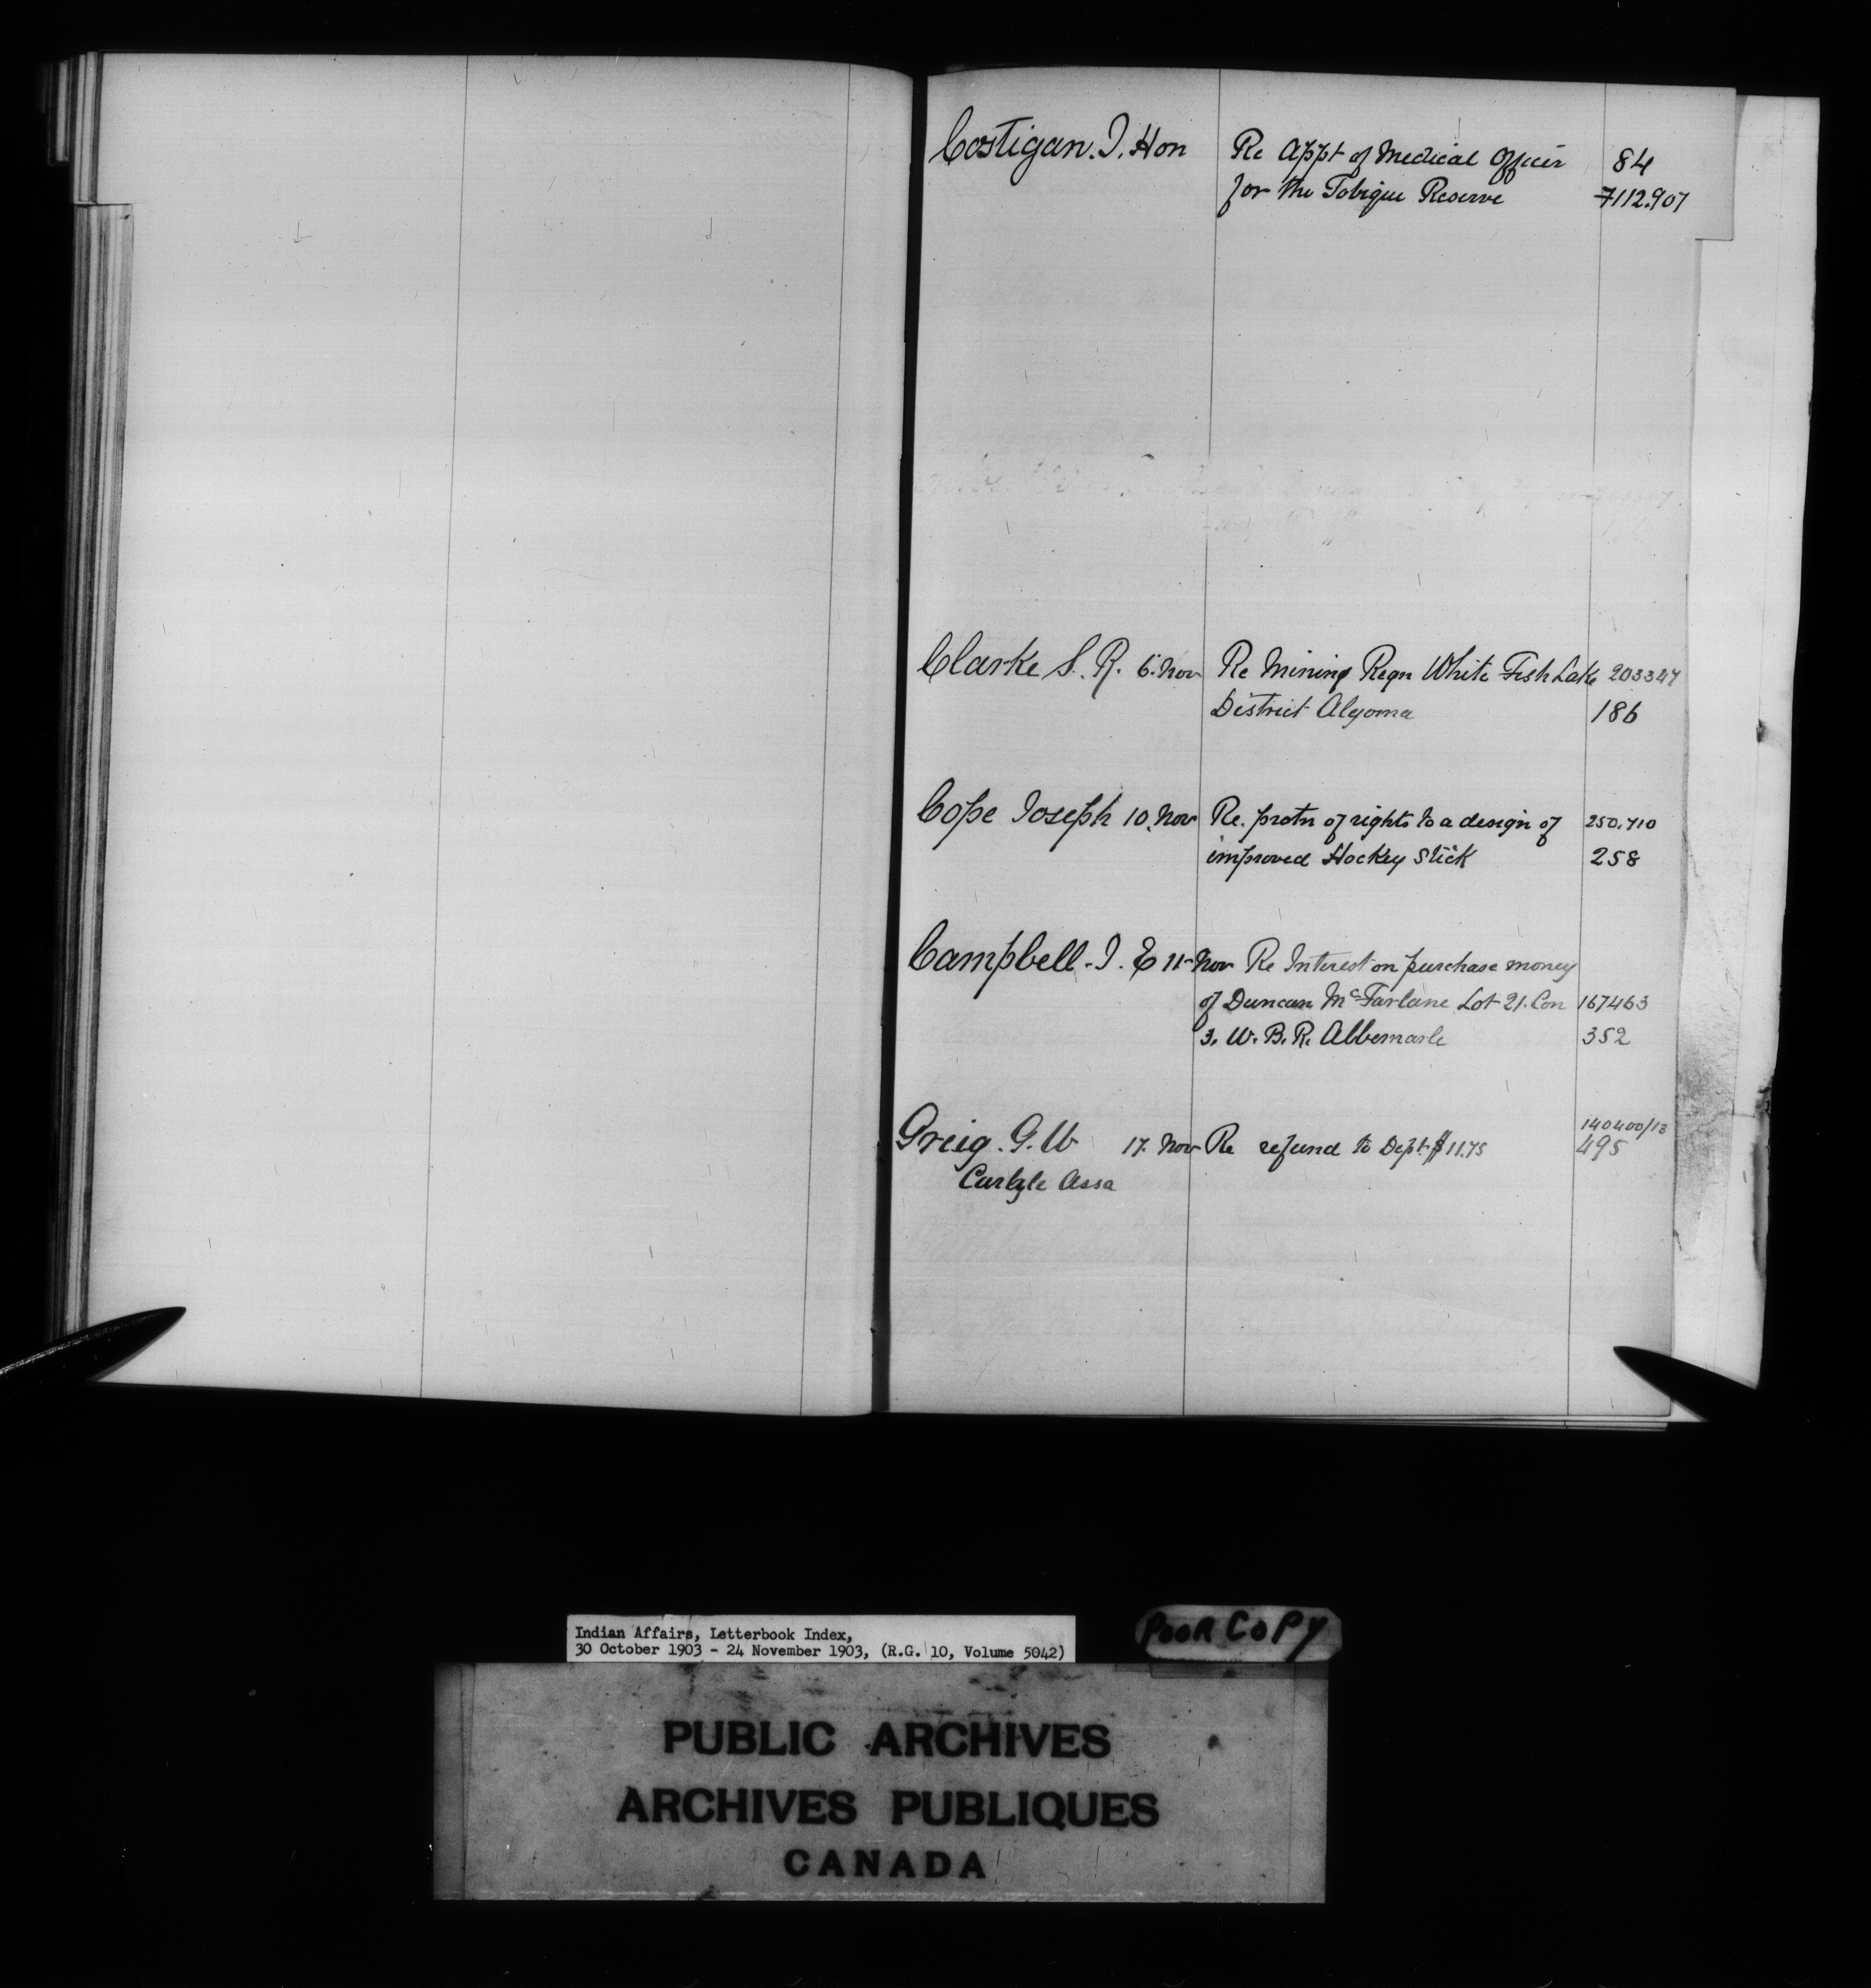 Costigan. J. Hon Re Appt of Medical Officer 84
for the Tobique Reserve 7112.907
Clarke S. R. 6. Nov Re Mining Regn White Fish Lake 203347
District Algoma 186
Cope Joseph 10. Nov Re. protn of rights to a design of 250.710
improved Hockey Stick 258
Campbell. J. E 11 Nov Re Interest on purchase money
of Duncan McFarlane Lot 21. Con 167463
3. W. B. R. Albemarle 352
140400/13
Greig. G. W 17. Nov Re refund to Dept $11.75 495
Carlyle Assa
Indian Affairs, Letterbook Index,
30 October 1903 - 24 November 1903, (R.G. 10, Volume 5042)
POOR COPY
PUBLIC ARCHIVES
ARCHIVES PUBLIQUES
CANADA